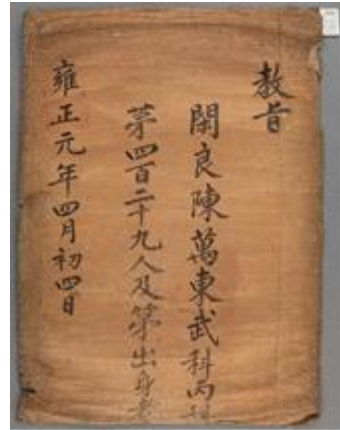 教旨
閑良陳萬東武科丙科
第四百二十九人及第出身者
雍正元年四月初四日